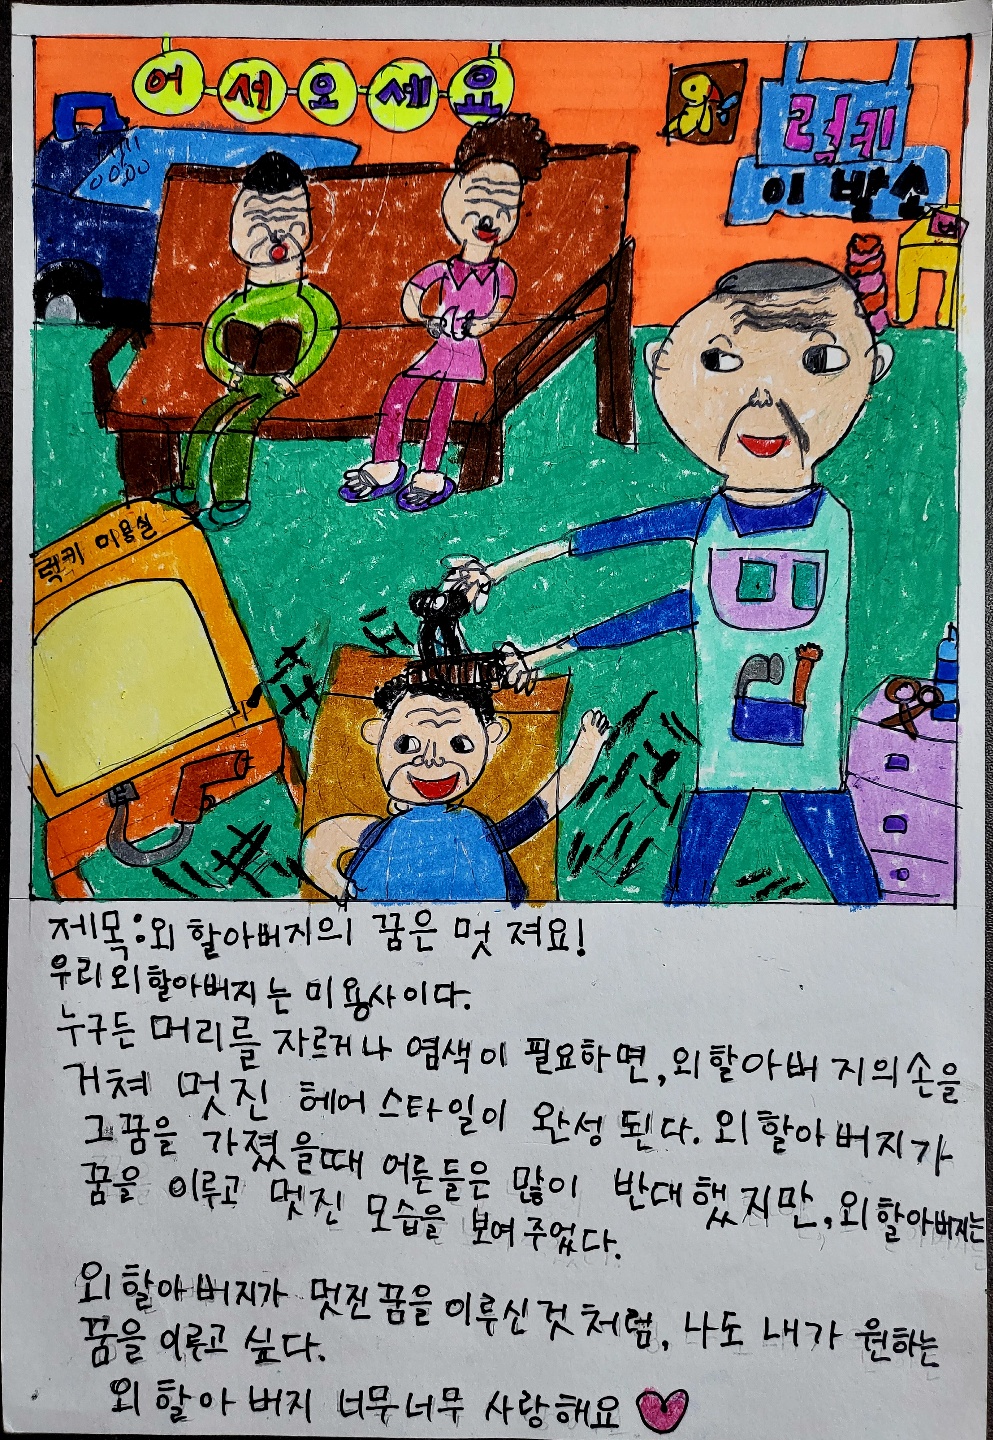 어서오세요
럭키
이발소
럭키 미용실
제목:외할아버지의 꿈은 멋져요!
우리외할아버지는 미용사이다.
누구든 머리를 자르거나 염색이 필요하면,외할아버지의손을
거쳐 멋진 헤어스타일이 완성된다. 외할아버지가
그꿈을 가졌을때 어른들은 많이 반대했지만,외할아버지는
꿈을 이루고 멋진 모습을 보여주었다.
외할아버지가 멋진꿈을이루신것처럼, 나도 내가 원하는
꿈을 이루고 싶다.
외할아버지 너무너무 사랑해요